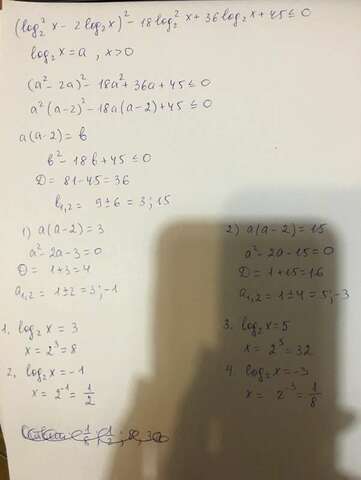 (log₂²x - 2log₂x)² - 18log₂²x + 36log₂x + 45 ≤ 0
log₂x = a, x > 0
(a² - 2a)² - 18a² + 36a + 45 ≤ 0
a²(a-2)² - 18a(a-2) + 45 ≤ 0
a(a-2) = b
b² - 18b + 45 ≤ 0
D = 81 - 45 = 36
b₁,₂ = 9 ± 6 = 3; 15
1) a(a-2) = 3
a² - 2a - 3 = 0
D = 1 + 3 = 4
a₁,₂ = 1 ± 2 = 3; -1
2) a(a-2) = 15
a² - 2a - 15 = 0
D = 1 + 15 = 16
a₁,₂ = 1 ± 4 = 5; -3
1. log₂x = 3
x = 2³ = 8
2. log₂x = -1
x = 2⁻¹ = 1/2
3. log₂x = 5
x = 2⁵ = 32
4. log₂x = -3
x = 2⁻³ = 1/8